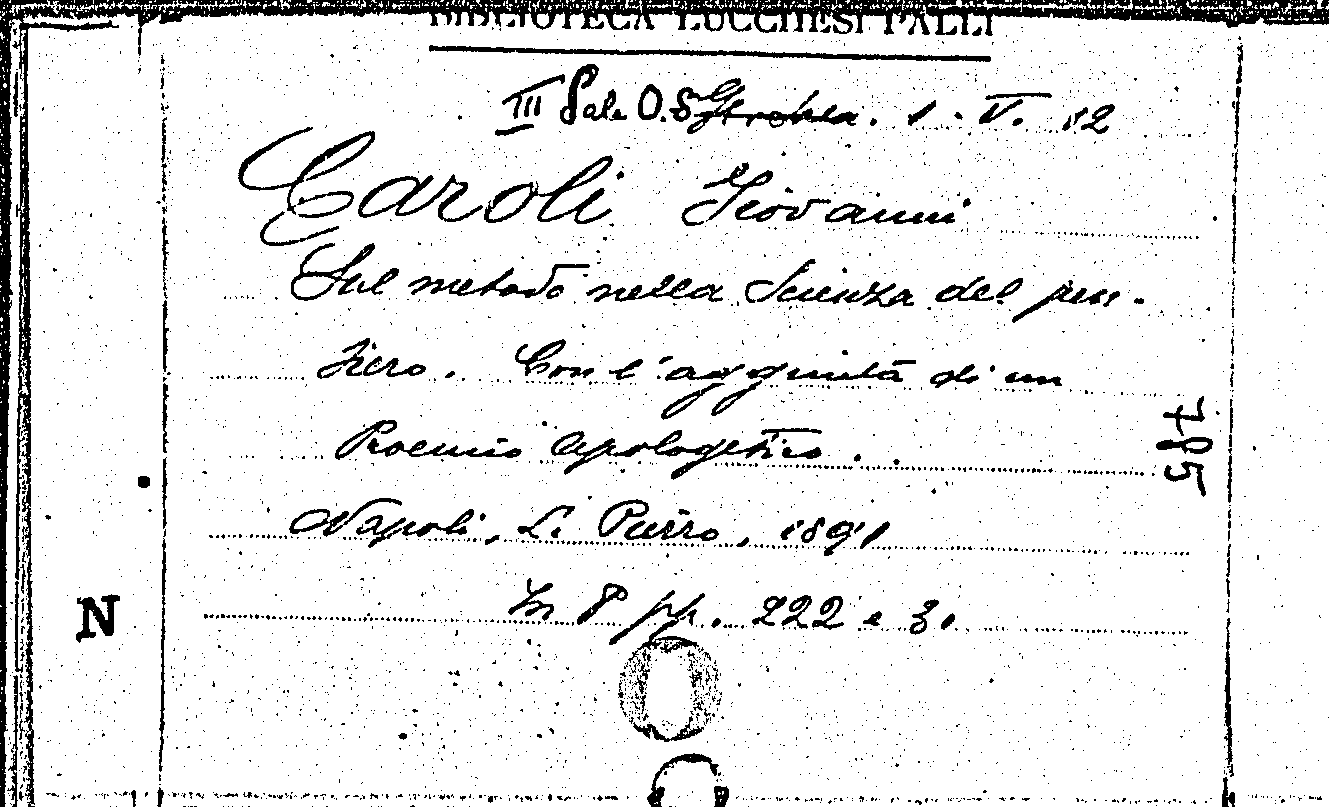 BIBLIOTECA LUCCHESI PALLI
III Sala O.S. 1. V. 12
Caroli Giovanni
Sul metodo nella Scienza del pen-
siero. Con l'aggiunta di un
Proemio apologetico.
Napoli, L. Pierro, 1891
In 8° pp. 222 e 31
785
N